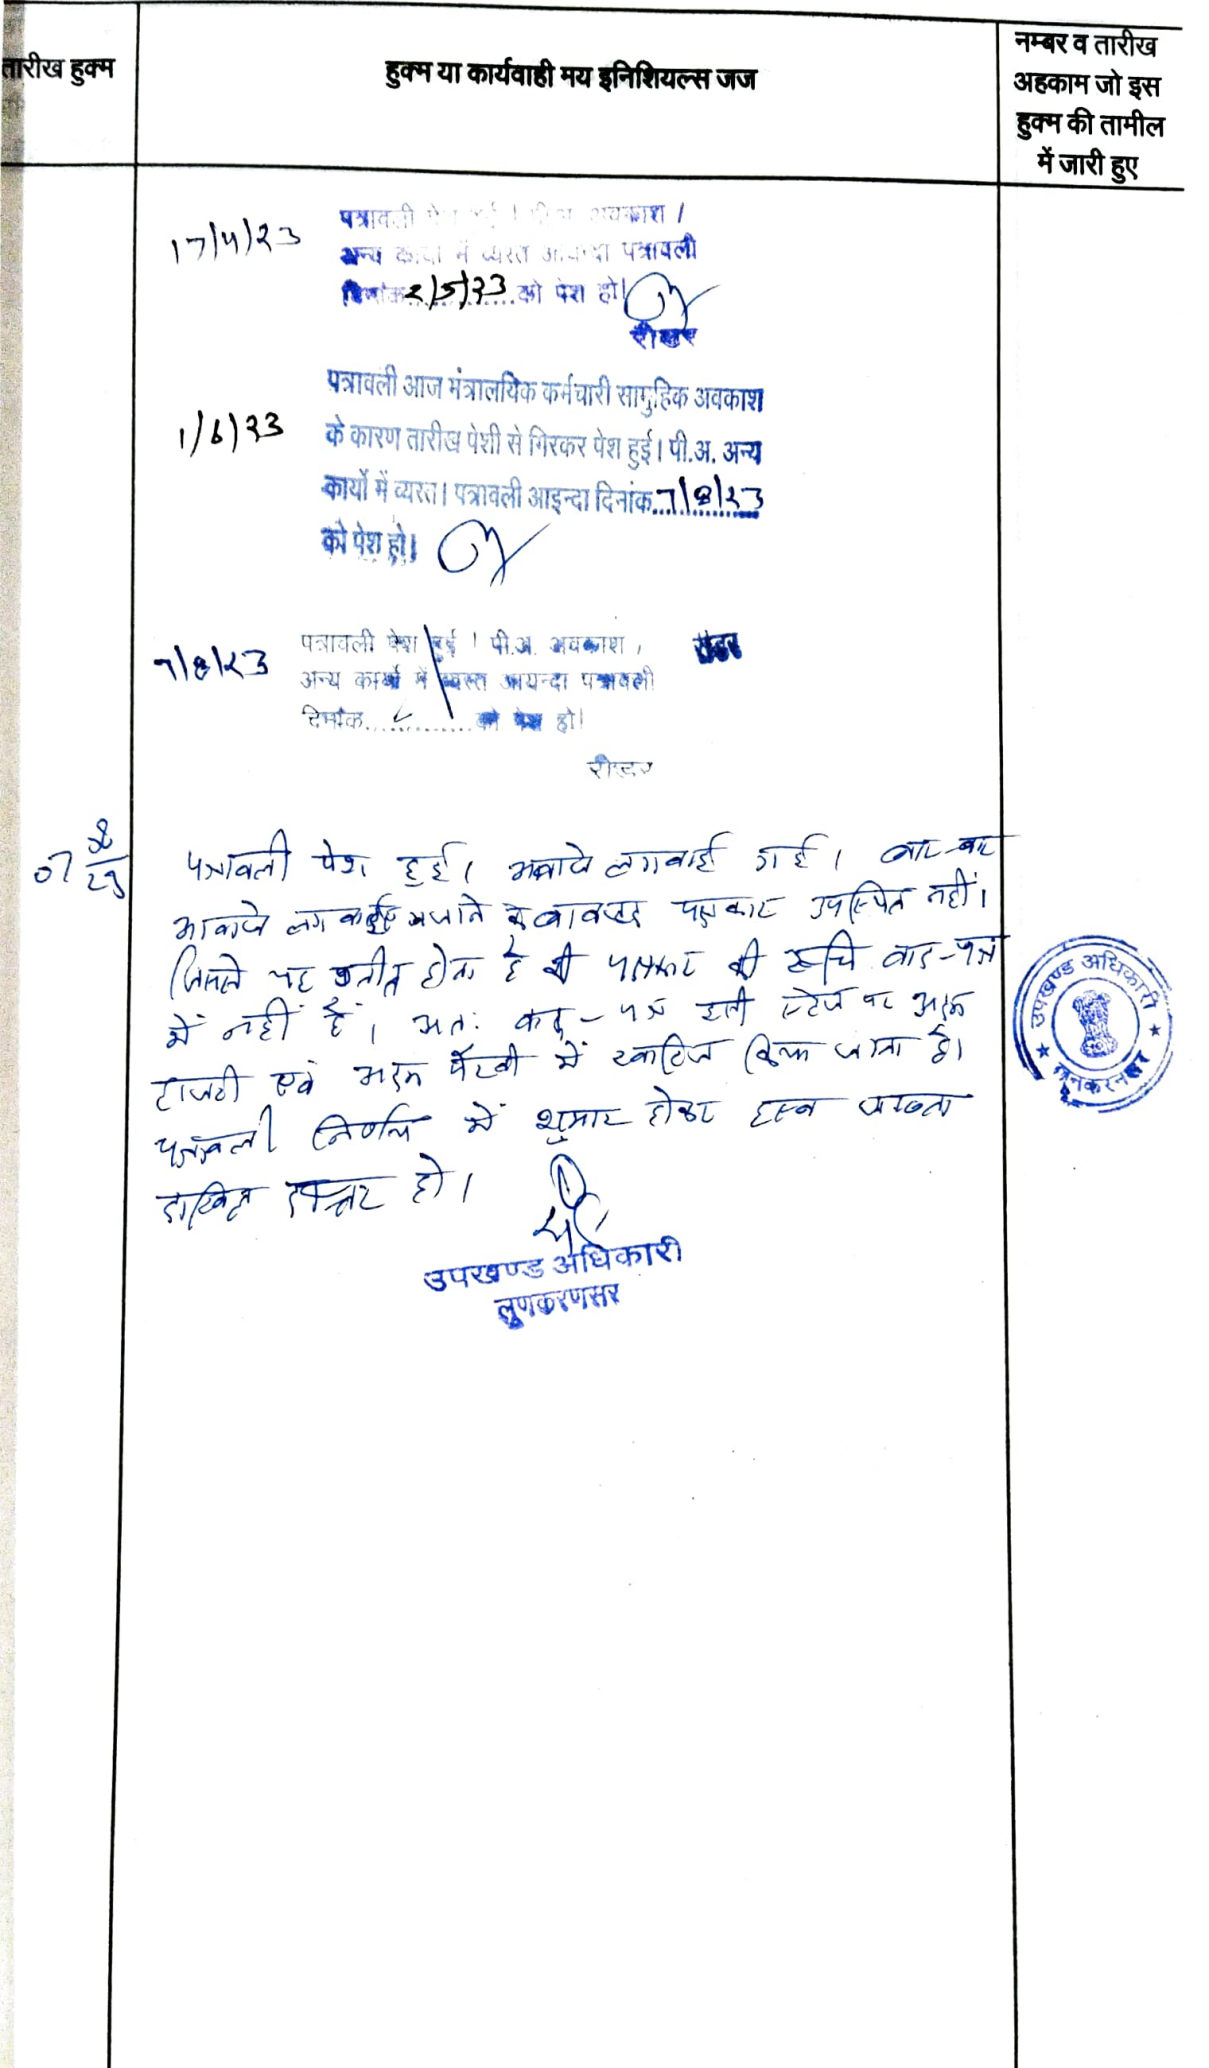 तारीख हुक्म
हुक्म या कार्यवाही मय इनिशियल्स जज
नम्बर व तारीख
अहकाम जो इस
हुक्म की तामील
में जारी हुए
17/4/23
पत्रावली पेश हुई । पी.अ. अवकाश /
अन्य कार्यो में व्यस्त आयन्दा पत्रावली
दिनांक 2/5/23 को पेश हो।
रीडर
1/6/23
पत्रावली आज मंत्रालयिक कर्मचारी सामुहिक अवकाश
के कारण तारीख पेशी से गिरकर पेश हुई। पी.अ. अन्य
कार्यों में व्यस्त। पत्रावली आइन्दा दिनांक 7/8/23
को पेश हो।
रीडर
7/8/23
पत्रावली पेश हुई । पी.अ. अवकाश ,
अन्य कार्यो में व्यस्त आयन्दा पत्रावली
दिनांक............ को पेश हो।
रीडर
07/8/23
पत्रावली पेश हुई। आवाजे लगवाई गई। बार-बार
आवाजे लगवाई जाने के बावजूद पक्षकार उपस्थित नहीं।
जिससे यह प्रतीत होता है की पक्षकार की रूचि वाद-पत्र
में नहीं है। अतः वाद-पत्र इसी स्टेज पर अदम
हाजरी एवं अदम पैरवी में खारिज किया जाता है।
पत्रावली निर्णय में शुमार होकर हस्ब जाब्ता
दाखिल दफ्तर हो।
उपखण्ड अधिकारी
लुणकरणसर
उपखण्ड अधिकारी
लूनकरनसर